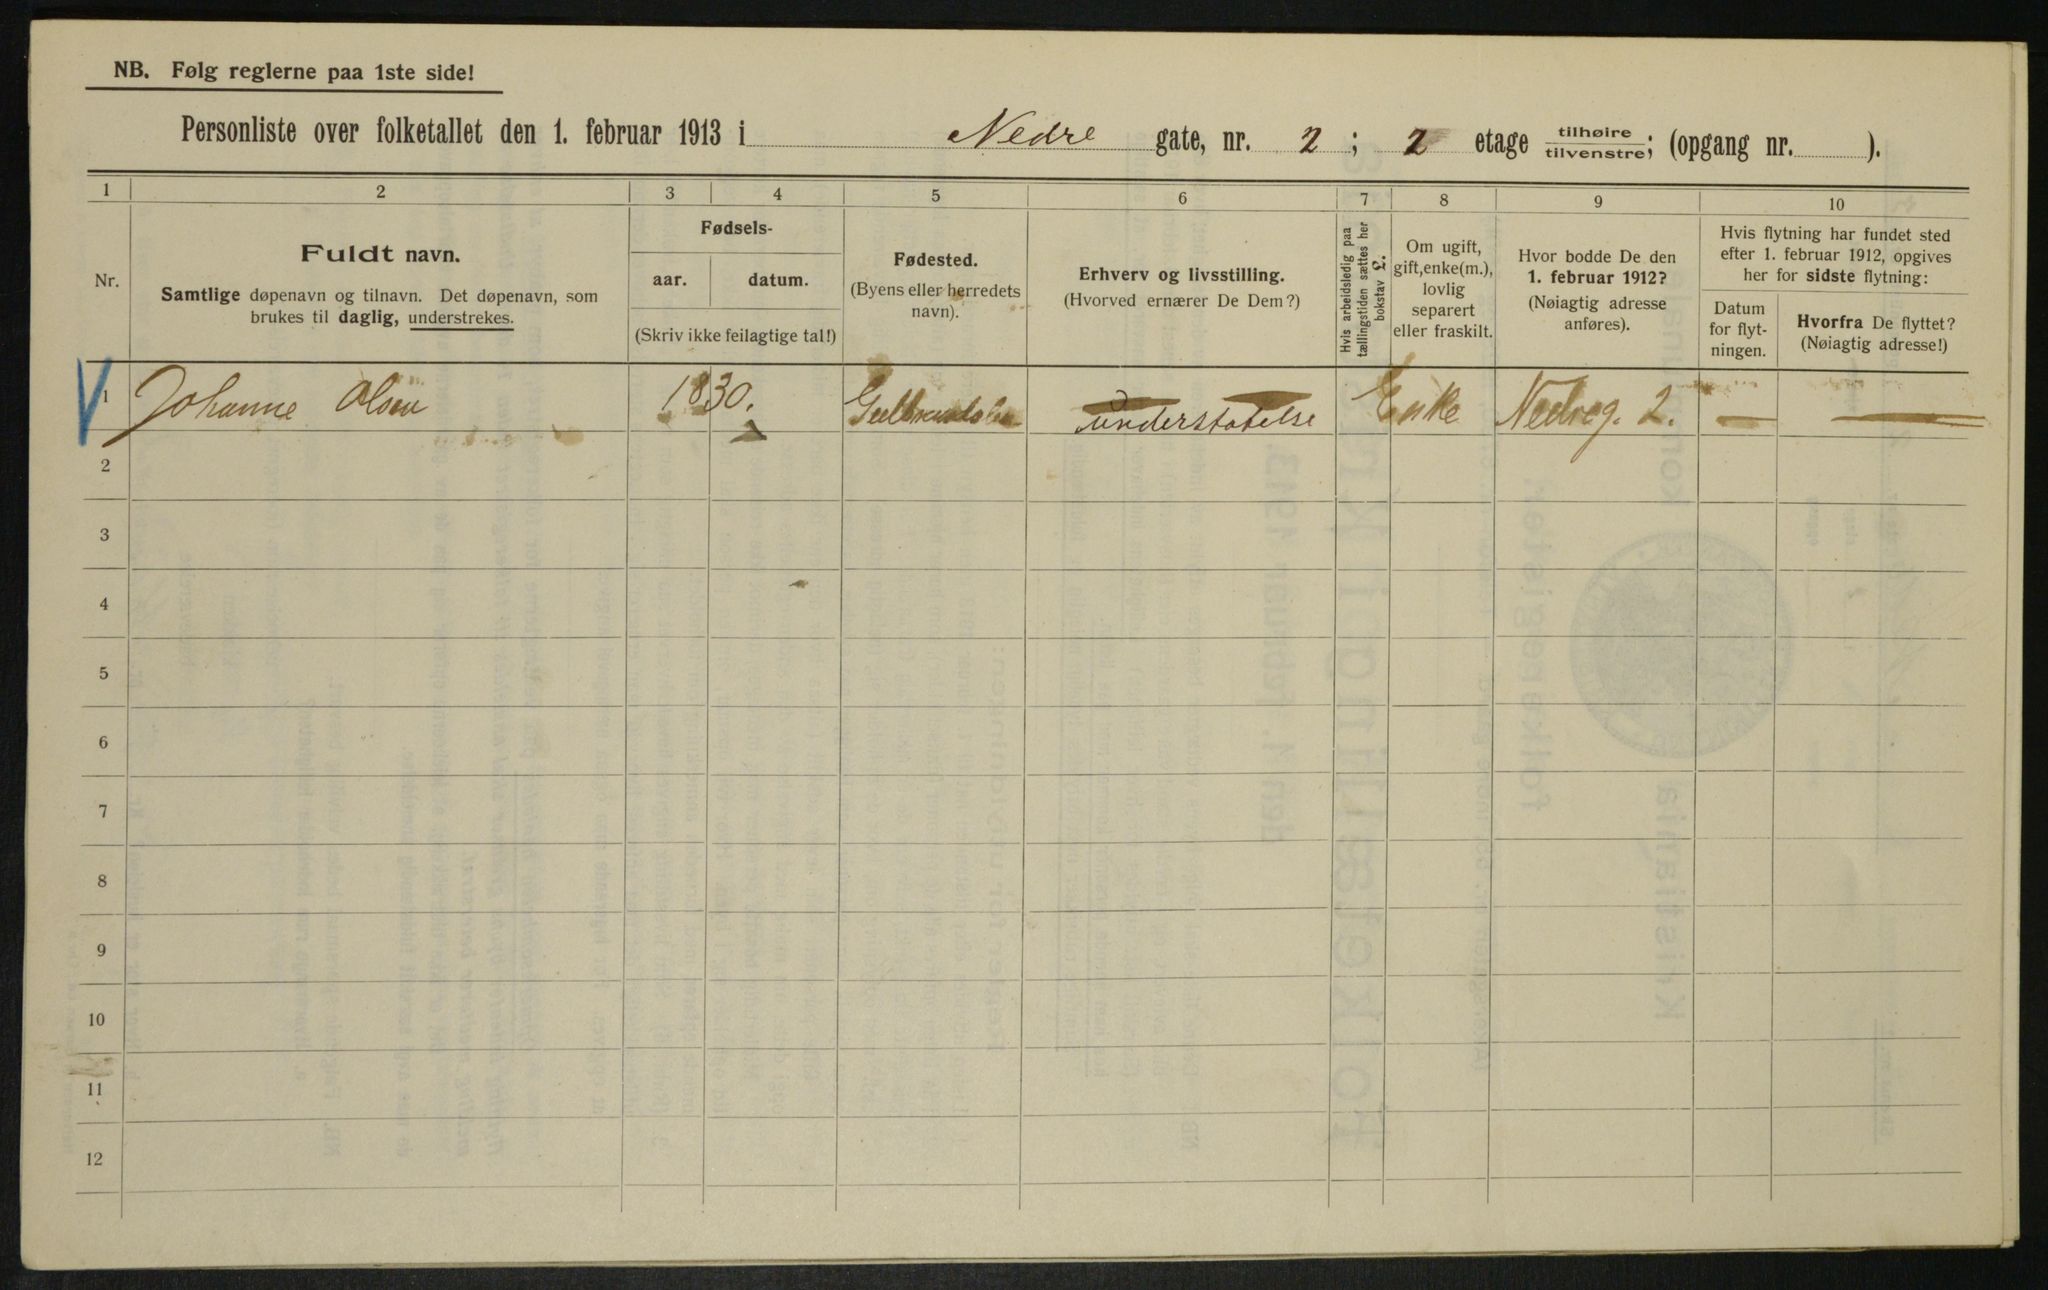 NB. Følg reglerne paa 1ste side!
Personliste over folketallet den 1. februar 1913 i Nedre gate, nr. 2; 2 etage tilhøire/tilvenstre; (opgang nr. ).
1 2 3 4 5 6 7 8 9 10
Nr.
Fuldt navn.
Samtlige døpenavn og tilnavn. Det døpenavn, som
brukes til daglig, understrekes.
Fødsels-
aar. datum.
(Skriv ikke feilagtige tal!)
Fødested.
(Byens eller herredets
navn).
Erhverv og livsstilling.
(Hvorved ernærer De Dem?)
Hvis arbeidsledig paa
tællingstiden sættes her
bokstav £.
Om ugift,
gift, enke(m.),
lovlig
separert
eller fraskilt.
Hvor bodde De den
1. februar 1912?
(Nøiagtig adresse
anføres).
Hvis flytning har fundet sted
efter 1. februar 1912, opgives
her for sidste flytning:
Datum
for flyt-
ningen.
Hvorfra De flyttet?
(Nøiagtig adresse!)
1 Johanne Olsen 1830. understøtelse Enke Nedreg. 2. — —
2
3
4
5
6
7
8
9
10
11
12